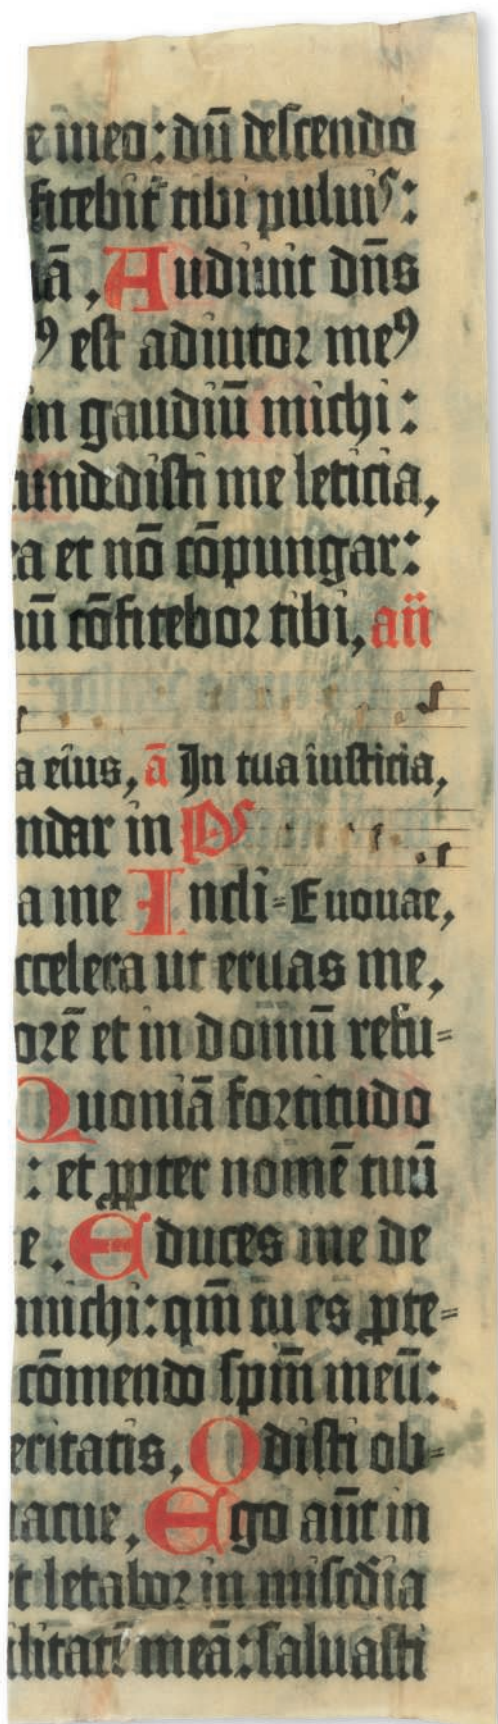 e meo: dū descendo
fitebit̄ tibi puluis:
tā, Audiuit dn̄s
ꝰ est adiutor meꝰ
in gaudiū michi:
cundedisti me leticia,
ea et nō cōpungar:
nū cōfitebor tibi, an̄
a eius, ā In tua iusticia,
ndar in Ps
a me Incli= Euouae,
ccelera ut eruas me,
orē et in domū refu=
Quoniā fortitudo
: et ꝓpter nomē tuū
e. Educes me de
michi: qm̄ tu es ꝓte=
cōmendo sp̄m meū:
eritatis, Odisti ob=
acue, Ego aūt in
t letabor in mis̄cdia
ilitatē meā: saluasti